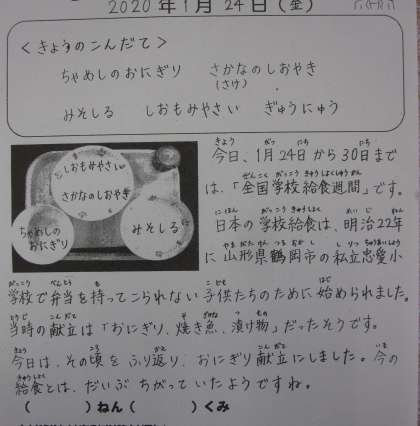 2020年1月24日(金)
<きょうのこんだて>
ちゃめしのおにぎり さかなのしおやき
(さけ)
みそしる しおもみやさい ぎゅうにゅう
しおもみやさい
さかなのしおやき
ちゃめしの
おにぎり
みそしる
今日、1月24日から30日まで
は、「全国学校給食週間」です。
日本の学校給食は、明治22年
に山形県鶴岡市の私立忠愛小
学校で弁当を持ってこられない子供たちのために始められました。
当時の献立は「おにぎり、焼き魚、漬け物」だったそうです。
今日は、その頃をふり返り、おにぎり献立にしました。今の
給食とは、だいぶちがっていたようですね。
( )ねん( )くみ